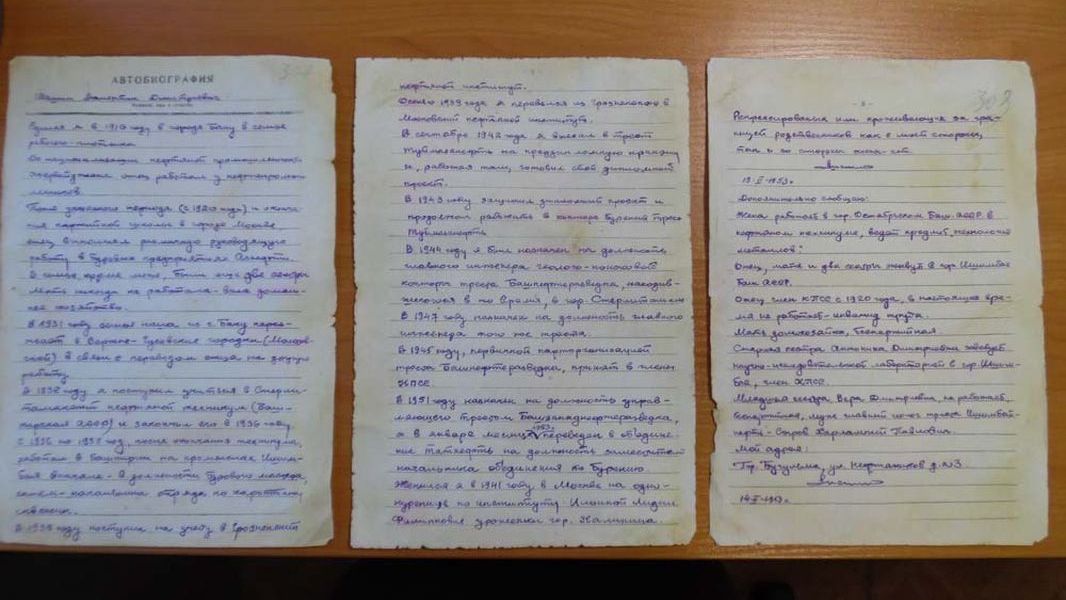 АВТОБИОГРАФИЯ
Шашин Валентин Дмитриевич
Родился я в 1916 году в городе Баку в семье
рабочего-плотника.
До национализации нефтяной промышленности
Азербайджана отец работал у нефтепромыш-
ленников.
После указанного периода (с 1920 года) и оконча-
ния партийной школы в городе Москве
отец выполнял различную руководящую
работу в буровых предприятиях Азнефти.
В семье, кроме меня, были еще две сестры.
Мать никогда не работала - вела домаш-
нее хозяйство.
В 1931 году семья наша из г. Баку переез-
жает в Верхне-Чусовские городки (Молотов-
ской) в связи с переводом отца на другую
работу.
В 1932 году я поступил учиться в Стерли-
тамакский нефтяной техникум (Баш-
кирская АССР) и закончил его в 1936 году.
С 1936 по 1938 год, после окончания техникума,
работал в Башкирии на промыслах Ишим-
бая вначале в должности бурового мастера,
затем - начальника отряда по
В 1938 году поступил на учебу в Грозненский
нефтяной институт.
Осенью 1939 года я перевелся из Грозненского в
Московский нефтяной институт.
В сентябре 1942 года я выехал в трест
Туймазанефть на преддипломную практику
и, работая там, готовил свой дипломный
проект.
В 1943 году защитил дипломный проект и
продолжал работать в конторе бурения треста
Туймазанефть.
В 1944 году я был назначен на должность
главного инженера геолого-поисковой
конторы треста Башнефтеразведка, находив-
шегося в то время, в гор. Стерлитамаке
В 1947 году назначен на должность главного
инженера того же треста.
В 1945 году, первичной парторганизацией
треста Башнефтеразведка, принят в члены
КПСС.
В 1951 году назначен на должность управ-
ляющего трестом Башзападнефтеразведка,
1953 г.
а в январе месяце переведен в объедине-
ние Татнефть на должность заместителя
начальника объединения по бурению.
Женился я в 1941 году в Москве на одно-
курснице по институту Лидии
Филипповне уроженки гор. Калинина.
- 3 -
308
Репрессированных или проживающих за гра-
ницей родственников как с моей стороны,
так и со стороны жены - нет.
1953г.
Дополнительно сообщаю:
Жена работает в гор. Октябрьском Баш. АССР в
нефтяном техникуме, ведет предмет, технологии
металлов.
Отец, мать и две сестры живут в гор. Ишимбае
Баш АССР.
Отец член КПСС с 1920 года, в настоящее вре-
мя не работает - инвалид труда.
Мать домохозяйка, беспартийная.
Старшая сестра Антонина Дмитриевна заведует
научно-исследовательской лабораторией в гор. Ишим-
бай, член КПСС.
Младшая сестра, Вера Дмитриевна, не работает,
муж главный треста Ишимбай-
нефть - Сыров Харлампий Павлович.
Мой адрес:
Гор. Бугульма, ул. Нефтяников д. №3